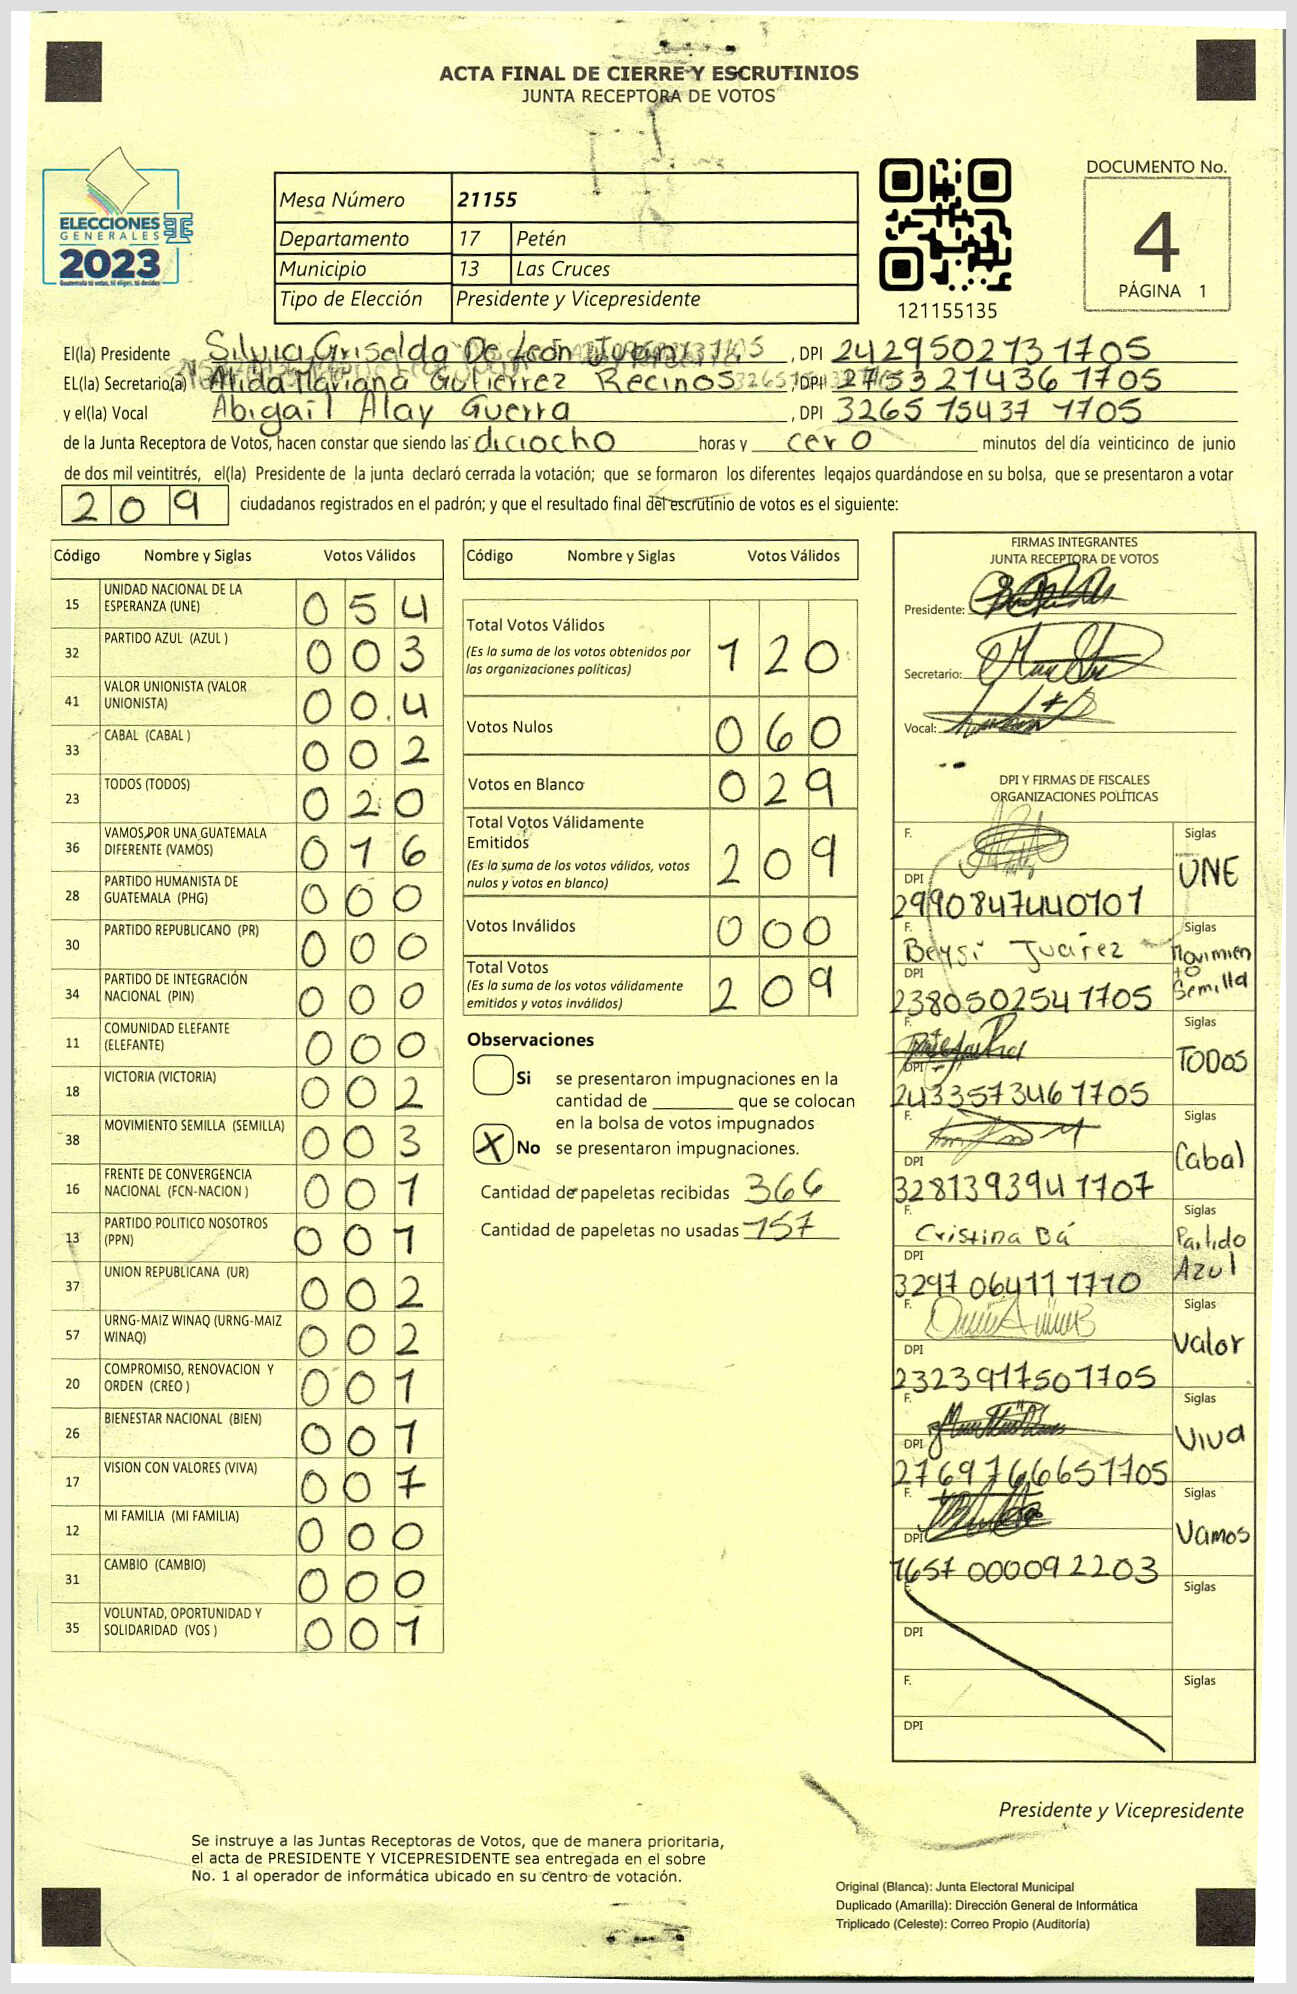 ACTA FINAL DE CIERRE Y ESCRUTINIOS
JUNTA RECEPTORA DE VOTOS
ELECCIONES
GENERALES
2023
Guatemala tú votas, tú eliges, tú decides
Mesa Número 21155
Departamento 17 Petén
Municipio 13 Las Cruces
Tipo de Elección Presidente y Vicepresidente
121155135
DOCUMENTO No.
4
PÁGINA 1
El(la) Presidente Silvia Griselda De León , DPI 2429502731705
EL(la) Secretario(a) Alida Mariana Gutierrez Recinos , DPI 2753274361705
y el(la) Vocal Abigail Alay Guerra , DPI 3265754371705
de la Junta Receptora de Votos, hacen constar que siendo las diciocho horas y cero minutos del día veinticinco de junio
de dos mil veintitrés, el(la) Presidente de la junta declaró cerrada la votación; que se formaron los diferentes legajos guardándose en su bolsa, que se presentaron a votar
209 ciudadanos registrados en el padrón; y que el resultado final del escrutinio de votos es el siguiente:
Código Nombre y Siglas Votos Válidos
15 UNIDAD NACIONAL DE LA ESPERANZA (UNE) 054
32 PARTIDO AZUL (AZUL ) 003
41 VALOR UNIONISTA (VALOR UNIONISTA) 004
33 CABAL (CABAL ) 002
23 TODOS (TODOS) 020
36 VAMOS POR UNA GUATEMALA DIFERENTE (VAMOS) 016
28 PARTIDO HUMANISTA DE GUATEMALA (PHG) 000
30 PARTIDO REPUBLICANO (PR) 000
34 PARTIDO DE INTEGRACIÓN NACIONAL (PIN) 000
11 COMUNIDAD ELEFANTE (ELEFANTE) 000
18 VICTORIA (VICTORIA) 002
38 MOVIMIENTO SEMILLA (SEMILLA) 003
16 FRENTE DE CONVERGENCIA NACIONAL (FCN-NACION ) 001
13 PARTIDO POLITICO NOSOTROS (PPN) 001
37 UNION REPUBLICANA (UR) 002
57 URNG-MAIZ WINAQ (URNG-MAIZ WINAQ) 002
20 COMPROMISO, RENOVACION Y ORDEN (CREO ) 001
26 BIENESTAR NACIONAL (BIEN) 001
17 VISION CON VALORES (VIVA) 007
12 MI FAMILIA (MI FAMILIA) 000
31 CAMBIO (CAMBIO) 000
35 VOLUNTAD, OPORTUNIDAD Y SOLIDARIDAD (VOS ) 001
Código Nombre y Siglas Votos Válidos
Total Votos Válidos
(Es la suma de los votos obtenidos por las organizaciones políticas) 120
Votos Nulos 060
Votos en Blanco 029
Total Votos Válidamente Emitidos
(Es la suma de los votos válidos, votos nulos y votos en blanco) 209
Votos Inválidos 000
Total Votos
(Es la suma de los votos válidamente emitidos y votos inválidos) 209
Observaciones
Si se presentaron impugnaciones en la
cantidad de ________ que se colocan
en la bolsa de votos impugnados
X No se presentaron impugnaciones.
Cantidad de papeletas recibidas 366
Cantidad de papeletas no usadas 157
FIRMAS INTEGRANTES
JUNTA RECEPTORA DE VOTOS
Presidente:
Secretario:
Vocal:
DPI Y FIRMAS DE FISCALES
ORGANIZACIONES POLÍTICAS
F. Siglas
UNE
DPI
2990847440101
F. Beysi Juárez Siglas
Movimiento Semilla
DPI
2380502541705
F. Siglas
TODOS
DPI
2433573461705
F. Siglas
Cabal
DPI
3281393941707
F. Cristina Bá Siglas
Partido Azul
DPI
3297064111710
F. Siglas
Valor
DPI
2323917501705
F. Siglas
Viva
DPI
2769766651705
F. Siglas
Vamos
DPI
1657000092203
F. Siglas
DPI
F. Siglas
DPI
Presidente y Vicepresidente
Se instruye a las Juntas Receptoras de Votos, que de manera prioritaria,
el acta de PRESIDENTE Y VICEPRESIDENTE sea entregada en el sobre
No. 1 al operador de informática ubicado en su centro de votación.
Original (Blanca): Junta Electoral Municipal
Duplicado (Amarilla): Dirección General de Informática
Triplicado (Celeste): Correo Propio (Auditoría)